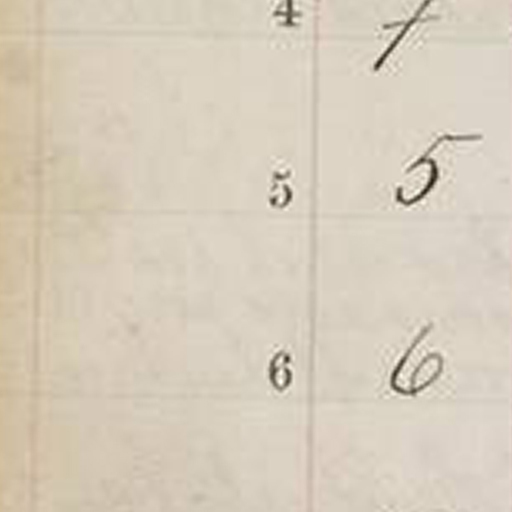 4 4
5 5
6 6